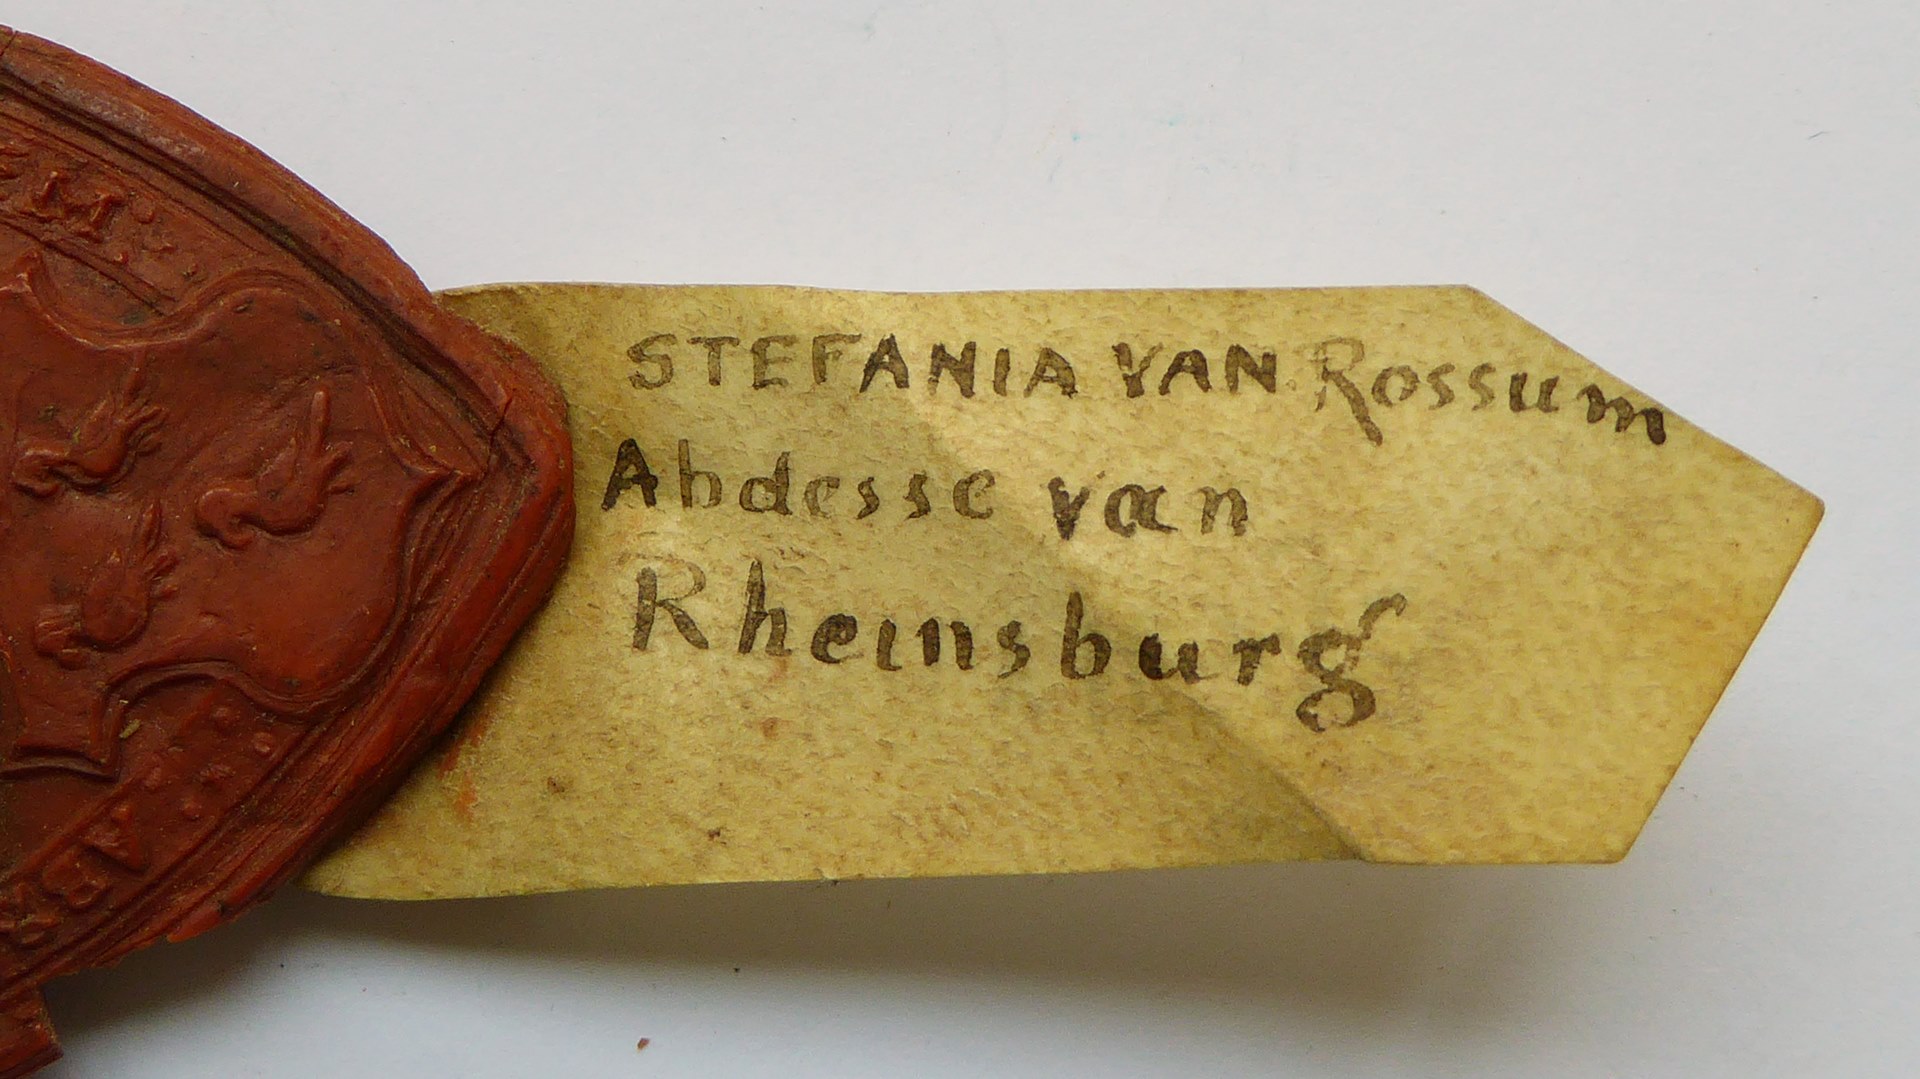 STEFANIA VAN Rossum
Abdesse van
Rheinsburg